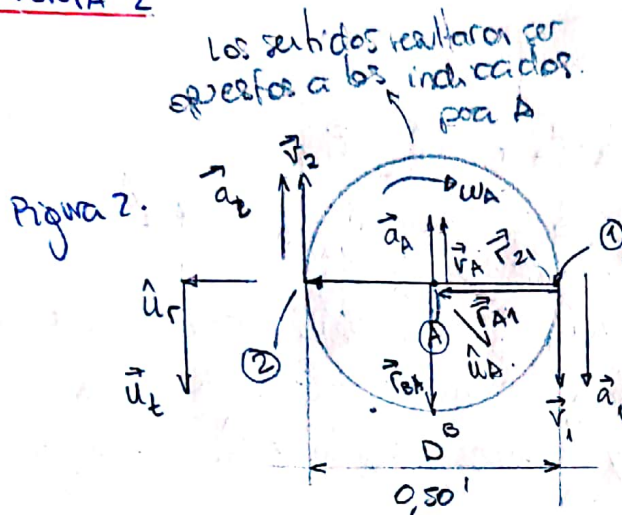 Los sentidos resultaron ser
opuestos a los indicados
para A
Figura 2.
a₂
v₂
ωA
①
aA
vA
r₂₁
ûr
②
A
rA1
ûA
ut
rBA
v₁
a₁
B
D
0,50'